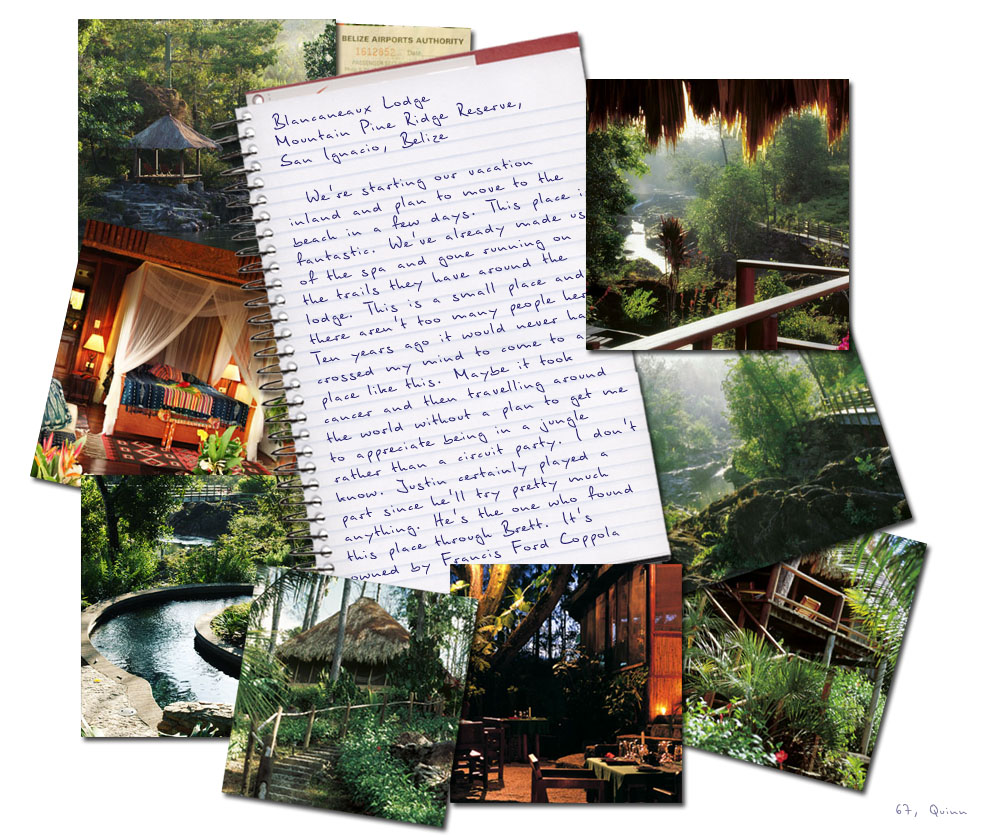 BELIZE AIRPORTS AUTHORITY
1612852
Blancaneaux Lodge
Mountain Pine Ridge Reserve,
San Ignacio, Belize
We're starting our vacation
inland and plan to move to the
beach in a few days. This place i
fantastic. We've already made us
of the spa and gone running on
the trails they have around the
lodge. This is a small place and
there aren't too many people her
Ten years ago it would never ha
crossed my mind to come to a
place like this. Maybe it took
cancer and then travelling around
the world without a plan to get me
to appreciate being in a jungle
rather than a circuit party. I don't
know. Justin certainly played a
part since he'll try pretty much
anything. He's the one who found
this place through Brett. It's
owned by Francis Ford Coppola
67, Quinn